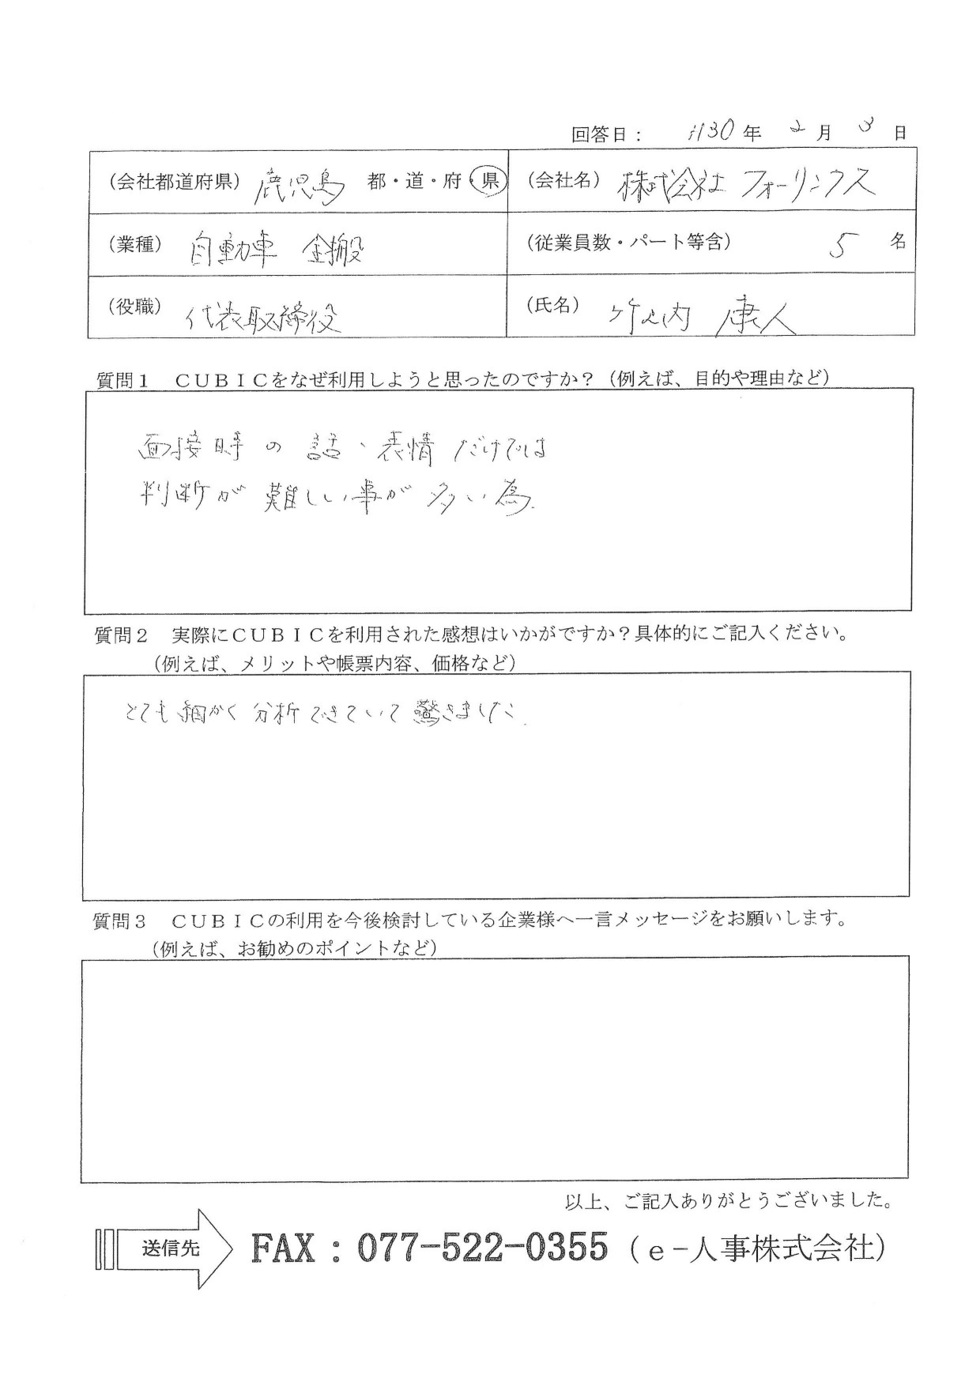 回答日： H30年 2月 3日
（会社都道府県） 鹿児島 都・道・府・県 （会社名） 株式会社 フォーリンクス
（業種） 自動車 （従業員数・パート等含） 5 名
（役職） 代表取締役 （氏名） 竹之内 康人
質問１ ＣＵＢＩＣをなぜ利用しようと思ったのですか？（例えば、目的や理由など）
面接時の話、表情だけでは
判断が難しい事が多い為.
質問２ 実際にＣＵＢＩＣを利用された感想はいかがですか？具体的にご記入ください。
（例えば、メリットや帳票内容、価格など）
とても細かく分析できていて驚きました.
質問３ ＣＵＢＩＣの利用を今後検討している企業様へ一言メッセージをお願いします。
（例えば、お勧めのポイントなど）
以上、ご記入ありがとうございました。
送信先 FAX：077-522-0355（e-人事株式会社）